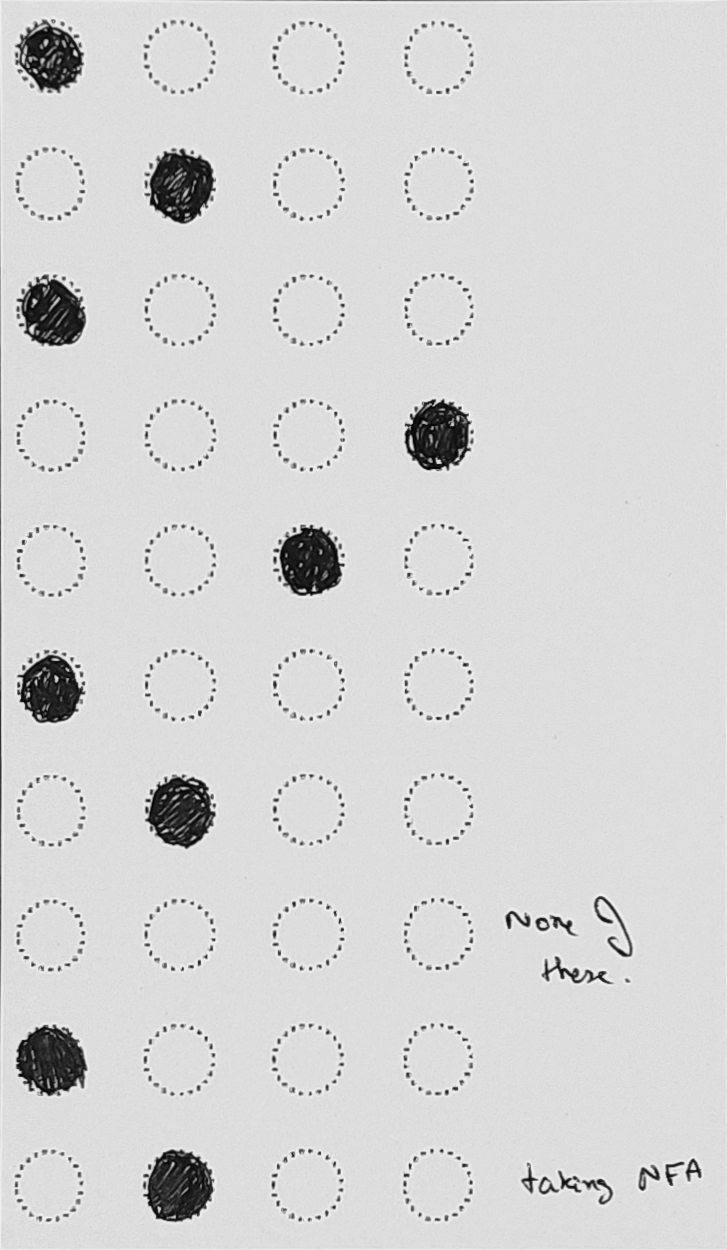 None of
these.
taking NFA